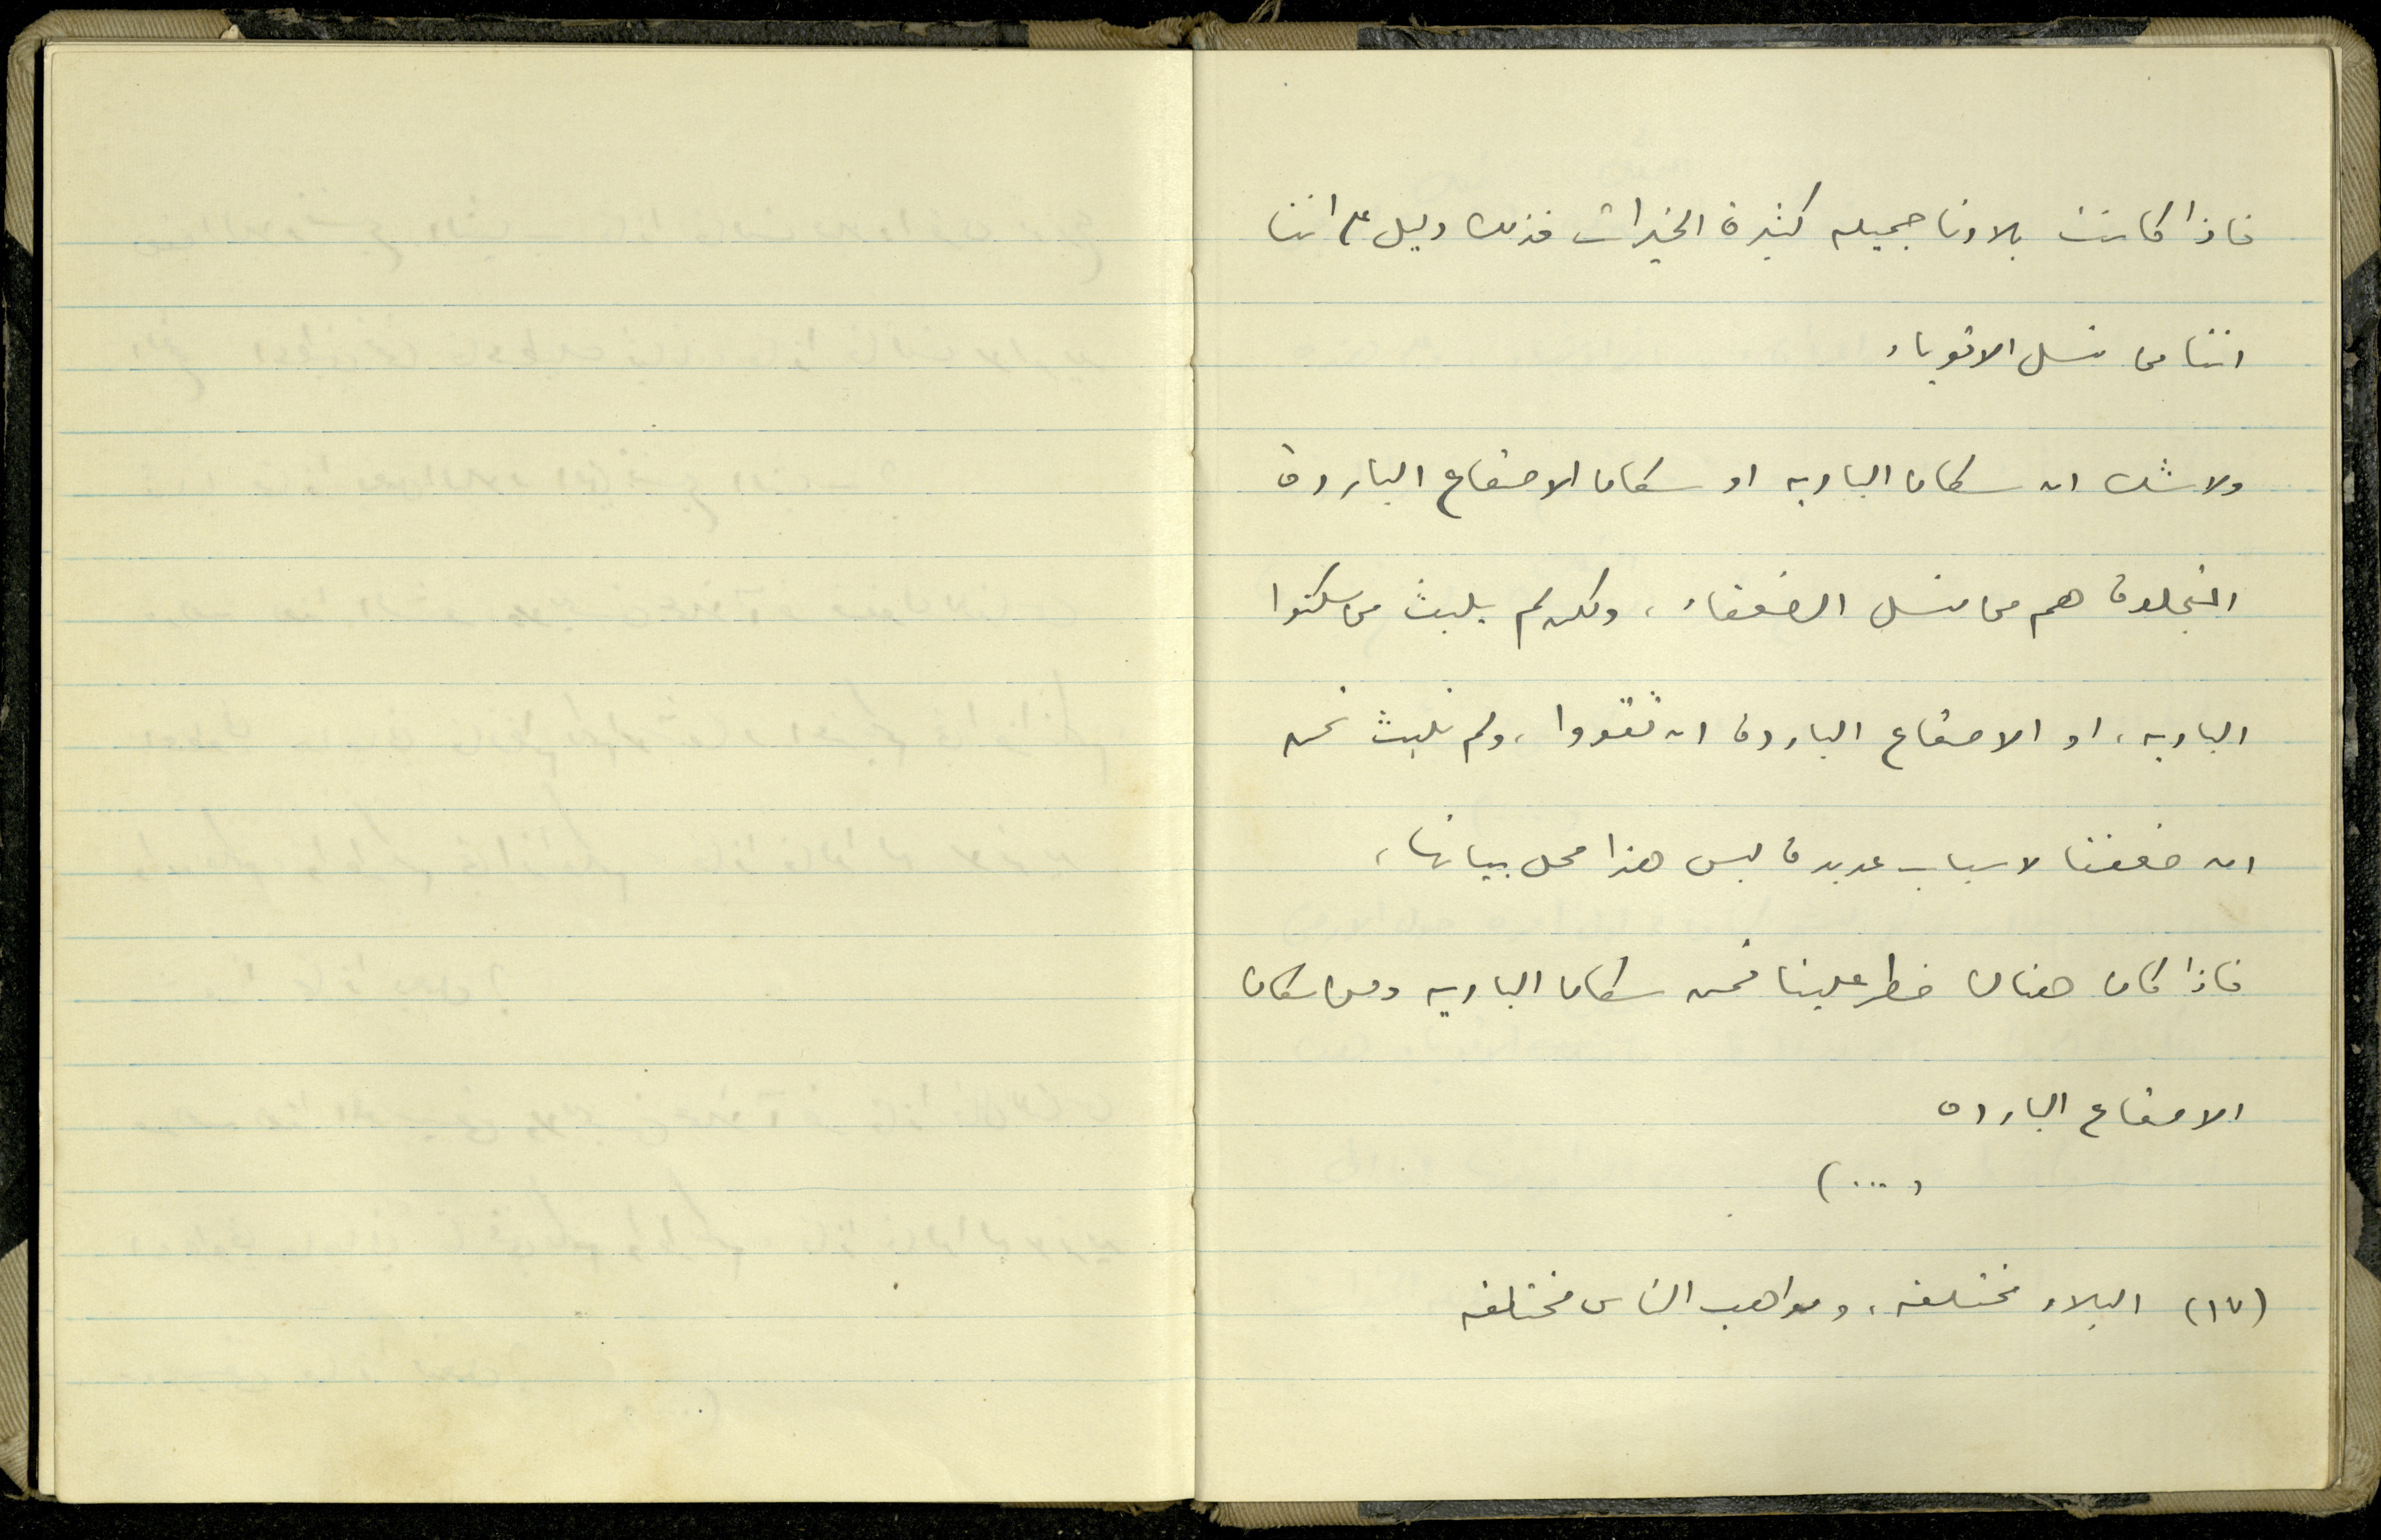 فاذا كانت بلادنا جميله كثيرة الخيرات فذلك دليل على اننا
اننا من نسل الاقوياء
ولا شك ان سكان الباديه او سكان الاصقاع الباردة
هم من نسل الضعفاء ، ولكن لم يلبث من سكنوا
الباديه ، او الاصقاع الباردة ان تقووا ، ولم نلبث نحن
ان ضعفنا لاسباب عديدة ليس هذا محل بيانها ،
فاذا كان هنالك خطر علينا فمن سكان الباديه ومن سكان
الاصقاع الباردة
( .... )
(١٧) البلاد مختلفه ، ومواهب الناس مختلفه